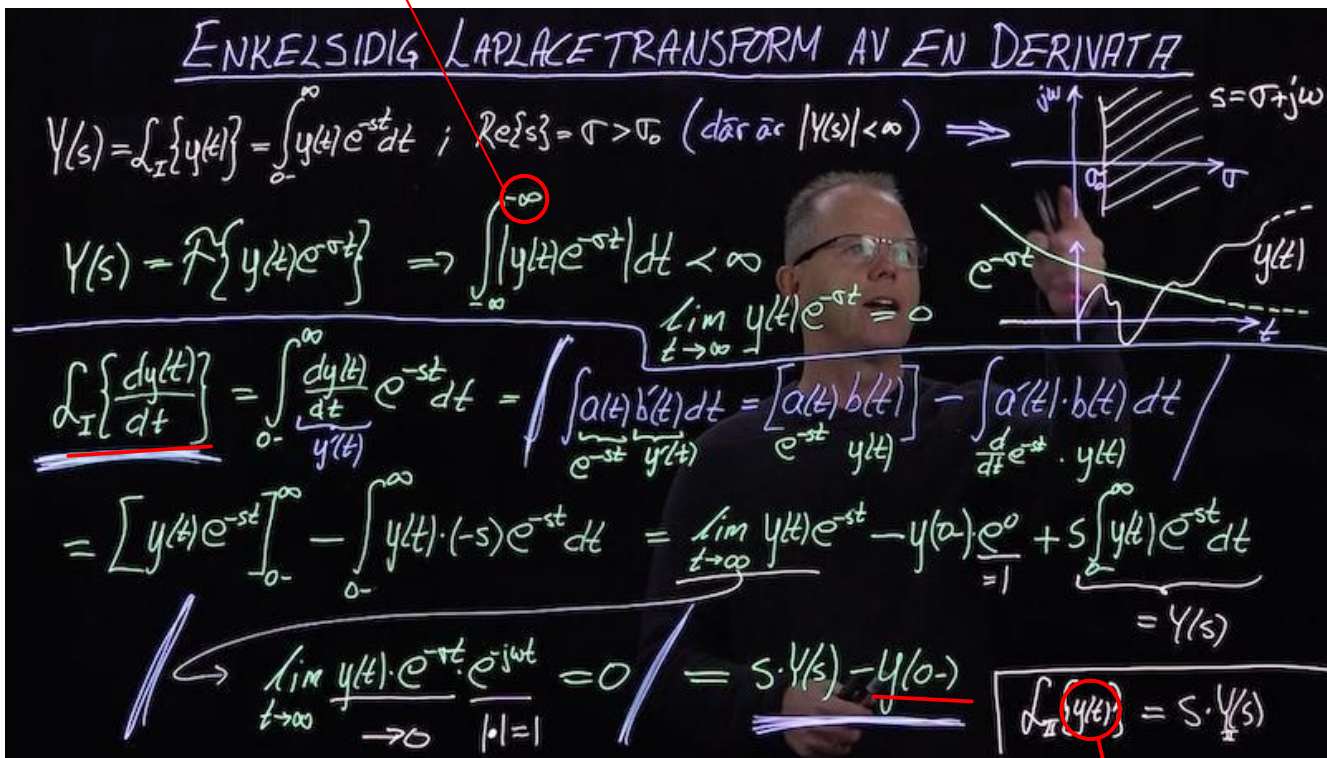 ENKELSIDIG LAPLACETRANSFORM AV EN DERIVATA
Y(s) = ℒ_I{y(t)} = ∫_{0-}^{∞} y(t) e^{-st} dt ; Re{s} = σ > σ₀ (där är |Y(s)| < ∞) ⟹
jω
s = σ + jω
σ₀
σ
Y(s) = ℱ{y(t) e^{-σt}} => ∫_{-∞}^{-∞} |y(t) e^{-σt}| dt < ∞
lim_{t→∞} y(t) e^{-σt} = 0
e^{-σt}
y(t)
t
ℒ_I{dy(t)/dt} = ∫_{0-}^{∞} dy(t)/dt e^{-st} dt = / ∫ a(t) b'(t) dt = [a(t) b(t)] - ∫ a'(t) · b(t) dt /
y'(t)
e^{-st} y'(t)
e^{-st} y(t)
d/dt e^{-st} · y(t)
= [y(t) e^{-st}]_{0-}^{∞} - ∫_{0-}^{∞} y(t) · (-s) e^{-st} dt = lim_{t→∞} y(t) e^{-st} - y(0-) · e^0 + s ∫_{0-}^{∞} y(t) e^{-st} dt
=1
= Y(s)
/ → lim_{t→∞} y(t) · e^{-σt} · e^{-jωt} = 0 / = s · Y(s) - y(0-)
→0 |·| = 1
ℒ_II{y(t)} = s · Y_II(s)